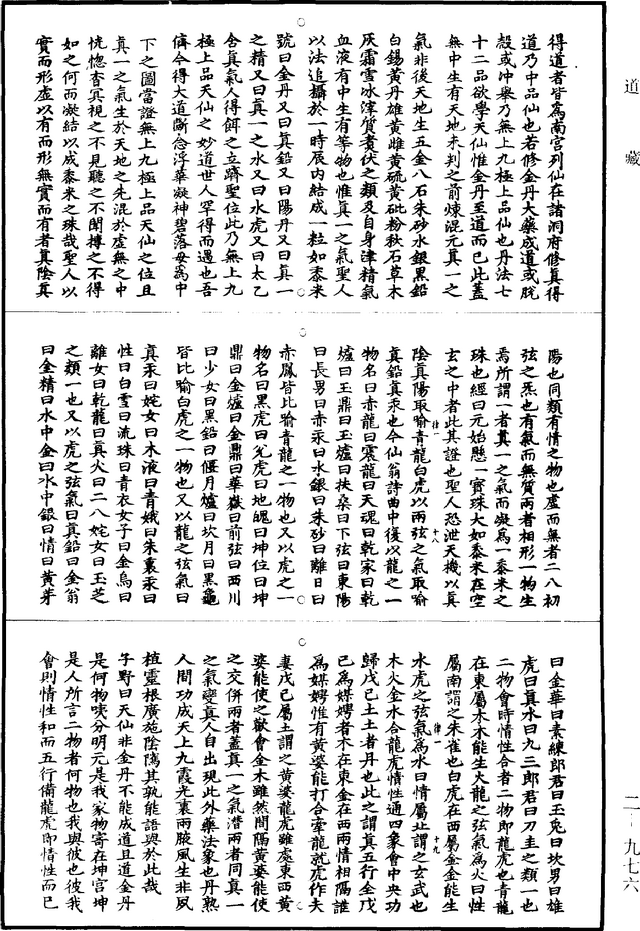 道藏
得道者皆為南宮列仙在諸洞府修真得
道乃中品仙也若修金丹大藥成道或脫
殼或沖舉乃無上九極上品仙也丹法七
十二品欲學天仙惟金丹至道而已此蓋
無中生有天地未判之前煉混元真一之
氣非後天地生五金八石朱砂水銀黑鉛
白錫黃丹雄黃雌黃硫黃砒粉秋石草木
灰霜雪冰滓質煮伏之類及自身津精氣
血液有中生有等物也惟真一之氣聖人
以法追攝於一時辰內結成一粒如黍米
號曰金丹又曰真鉛又曰陽丹又曰真一
之精又曰真一之水又曰水虎又曰太乙
含真氣人得餌之立躋聖位此乃無上九
極上品天仙之妙道世人罕得而遇也吾
儕今得大道斷念浮華凝神碧落毋為中
下之圖當證無上九極上品天仙之位且
真一之氣生於天地之先混於虛無之中
恍惚杳冥視之不見聽之不聞摶之不得
如之何而凝結以成黍米之珠哉聖人以
實而形虛以有而形無實而有者真陰真
陽也同類有情之物也虛而無者二八初
弦之炁也有氣而無質兩者相形一物生
焉所謂一者真一之氣而凝為一黍米之
珠也經曰元始懸一寶珠大如黍米在空
玄之中者此其證也聖人恐泄天機以真
陰真陽取喻青龍白虎以兩弦之氣取喻
真鉛真汞也今仙翁詩曲中復以龍之一
物名曰赤龍曰震龍曰天魂曰乾家曰乾
爐曰玉鼎曰玉爐曰扶桑曰下弦曰東陽
曰長男曰赤汞曰水銀曰朱砂曰離日曰
赤鳳皆比喻青龍之一物也又以虎之一
物名曰黑虎曰兌虎曰地魄曰坤位曰坤
鼎曰金爐曰金鼎曰華嶽曰前弦曰西川
曰少女曰黑鉛曰偃月爐曰坎月曰黑龜
皆比喻白虎之一物也又以龍之弦氣曰
真汞曰姹女曰木液曰青娥曰朱裏汞曰
性曰白雪曰流珠曰青衣女子曰金烏曰
離女曰乾龍曰真火曰二八姹女曰玉芝
之類一也又以虎之弦氣曰真鉛曰金翁
曰金精曰水中金曰水中銀曰情曰黃芽
曰金華曰素練郎君曰玉兔曰坎男曰雄
虎曰真水曰九三郎君曰刀圭之類一也
二物會時情性合者二物即龍虎也青龍
在東屬木木能生火龍之弦氣為火曰性
屬南謂之朱雀也白虎在西屬金金能生
水虎之弦氣為水曰情屬北謂之玄武也
木火金水合龍虎情性通四象會中央功
歸戊己土土者丹也此之謂真五行全戊
己為媒娉者木在東金在西兩情相隔誰
為媒娉惟有黃婆能打合牽龍就虎作夫
妻戊己屬土謂之黃婆龍虎雖處東西黃
婆能使之歡會金木雖然間隔黃婆能使
之交併兩者蓋真一之氣潛兩者同真一
之氣變真人自出現此外藥法象也丹熟
人間功成天上九霞光裏兩腋風生非夙
植靈根廣施陰隲其孰能語與於此哉
子野曰天仙非金丹不能成道且道金丹
是何物咦分明元是我家物寄在坤宮坤
是人所言二物者何物也我與彼也彼我
會則情性和而五行備龍虎即情性而已
律一　十八
律一　十九
二—九七六